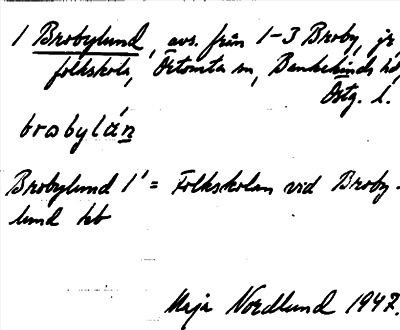 1 Brobylund, avs. från 1-3 Broby, jr
folkskola, Örtomta sn, Bankekinds hd,
Östg. l.
brobylán
Brobylund 1' = Folkskolan vid Broby-
lund hb
Maja Nordlund 1947.